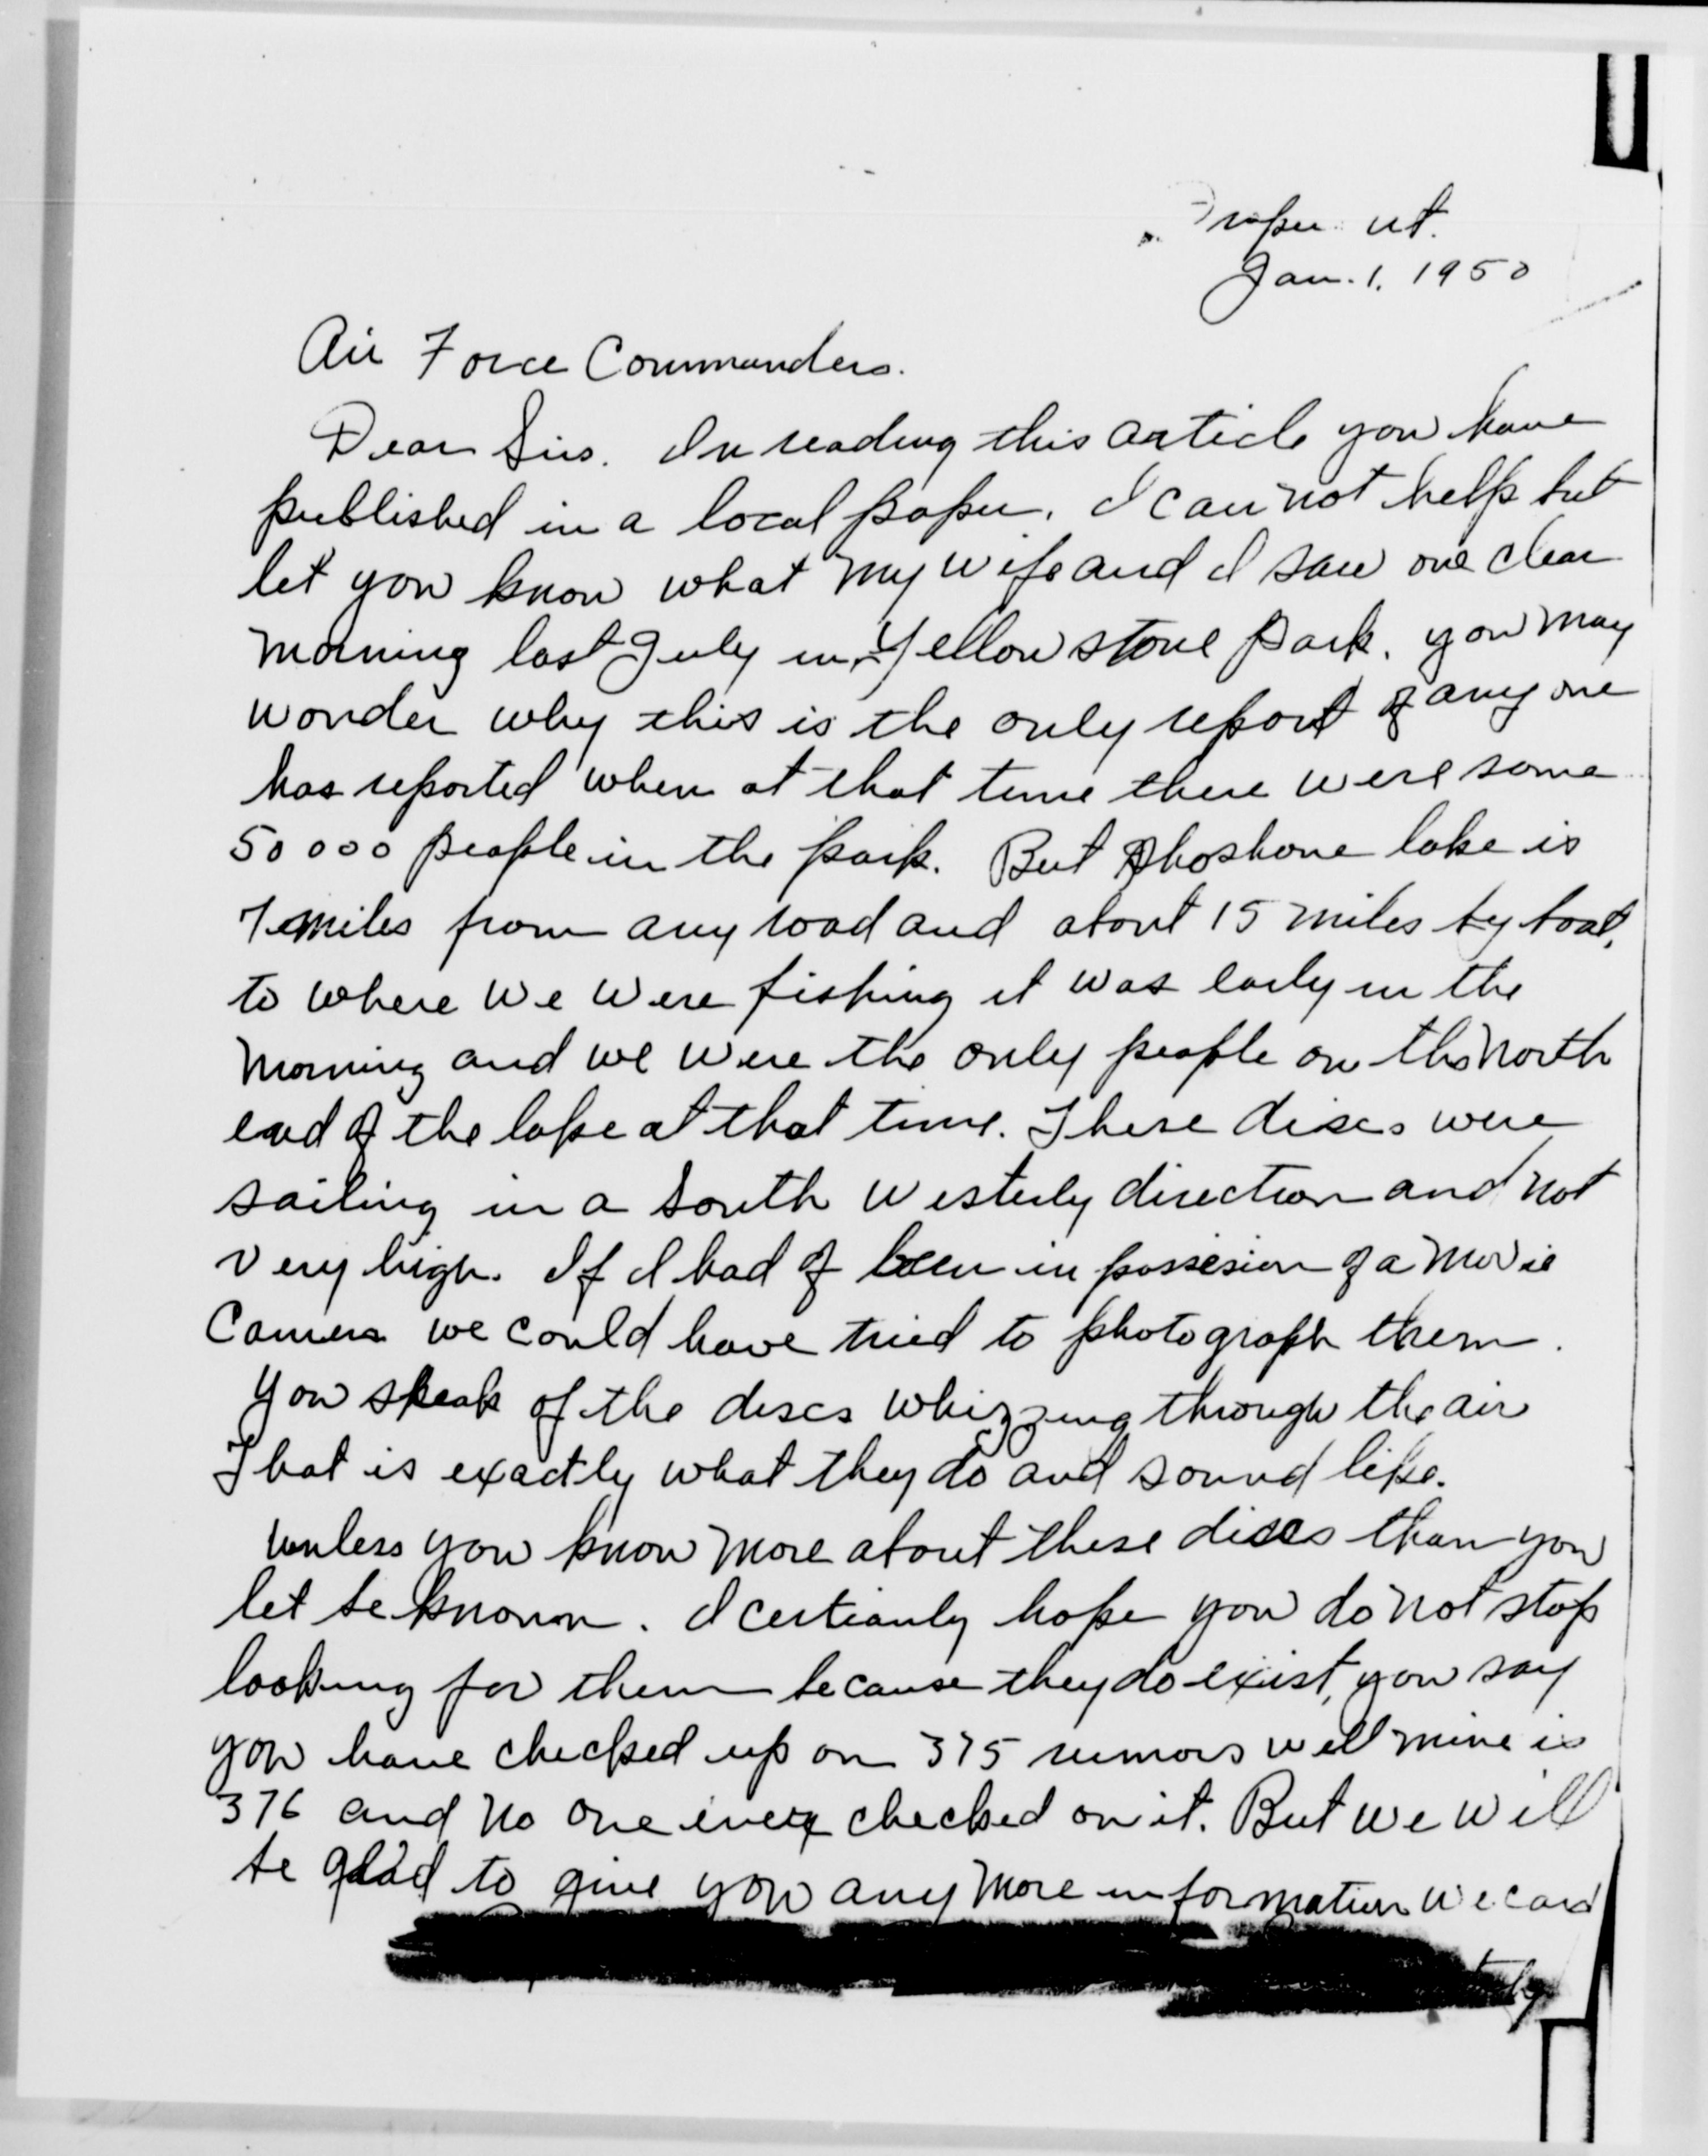 Draper Ut.
Jan. 1. 1950
Air Force Commanders.
Dear Sirs. In reading this article you have
published in a local paper. I can not help but
let you know what my wife and I saw one clear
morning last July in Yellow stone Park. you may
wonder why this is the only report of any one
has reported when at that time there were some
50000 people in the park. But Shoshone lake is
7 miles from any road and about 15 miles by boat,
to where we were fishing it was early in the
morning and we were the only people on the North
end of the lake at that time. These discs were
sailing in a South Westerly direction and not
very high. If I had of been in possesion of a movie
Camera we could have tried to photograph them.
You speak of the discs whizzing through the air
That is exactly what they do and sound like.
unless you know more about these discs than you
let be known. I certianly hope you do not stop
looking for them because they do exist, you say
you have checked up on 375 rumors well mine is
376 and no one every checked on it. But we will
be glad to give you any more information we can